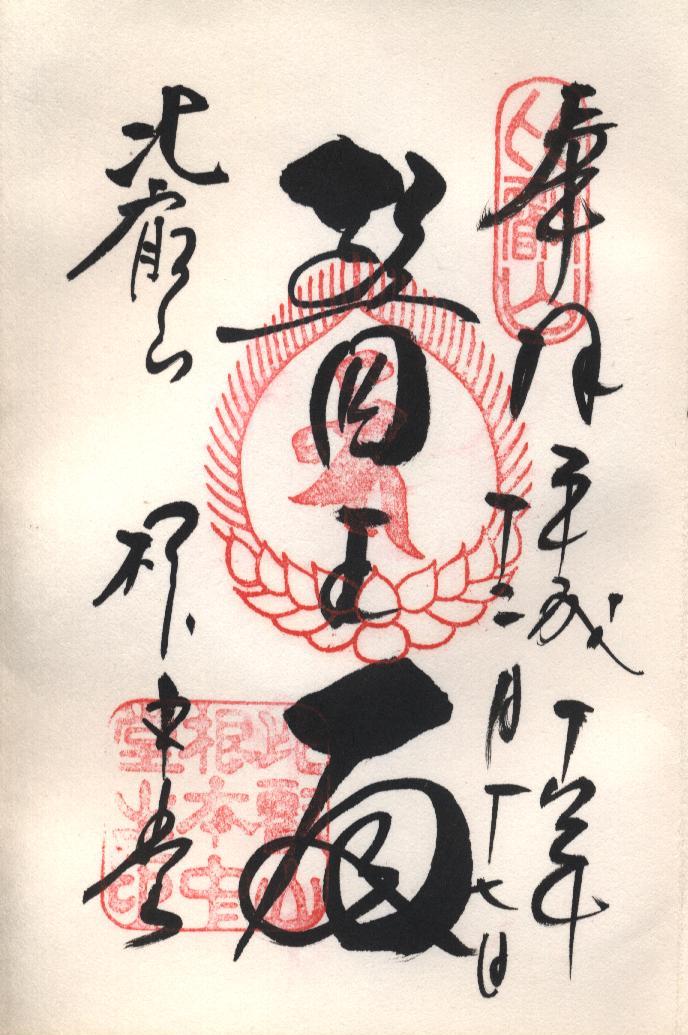 奉拝
平成十年
十二月十七日
比叡山
醫王殿
比叡山
根本中堂
比叡山
根本中
堂之印